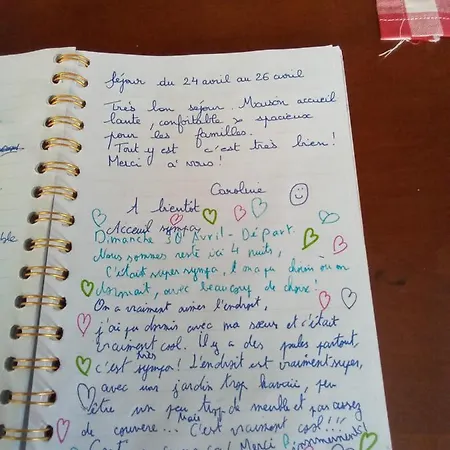 Séjour du 24 avril au 26 avril
Très bon séjour. Maison accueil
lante, confortable et spacieux
pour les familles.
Tout y est c'est très bien!
Merci à vous!
Caroline
A bientôt
Acceuil sympa
Dimanche 30 Avril - Départ.
Nous sommes resté ici 4 nuits,
C'était super sympa, on a pu choisir où on
dormait, avec beaucoup de choix!
On a vraiment aimer l'endroit,
j'ai pu dormis avec ma sœur et c'était
vraiment cool. Il y a des poules partout,
c'est très sympa! L'endroit est vraiment super,
avec une jardin trop, peu
être un peu trop de meuble et pas assez
de couvere... Mais C'est vraiment cool!!!
Merci